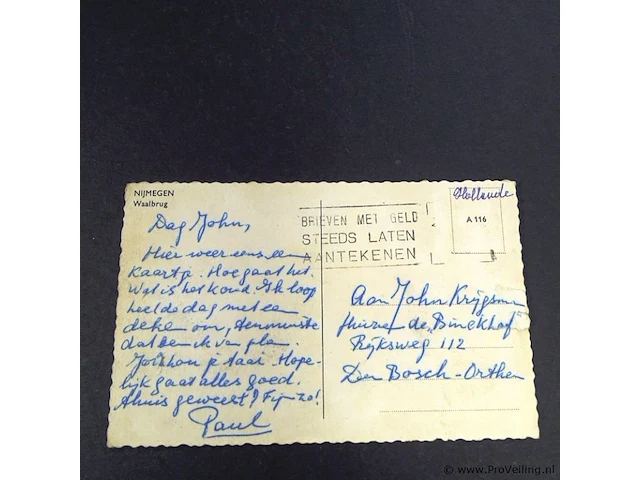 NIJMEGEN
Waalbrug
Dag John,
Hier weer eens een
kaartje. Hoe gaat het.
Wat is het koud. Ik loop
heel de dag met een
deken om, tenminste
dat ben ik van plan.
John hou je taai. Hope-
lijk gaat alles goed.
thuis geweest? Fijn zo!
Paul
BRIEVEN MET GELD
STEEDS LATEN
AANTEKENEN
Hollande
A 116
Aan John Krijgsman
de "Binckhof"
Rijksweg 112
Den Bosch-Orthen
© www.ProVeiling.nl